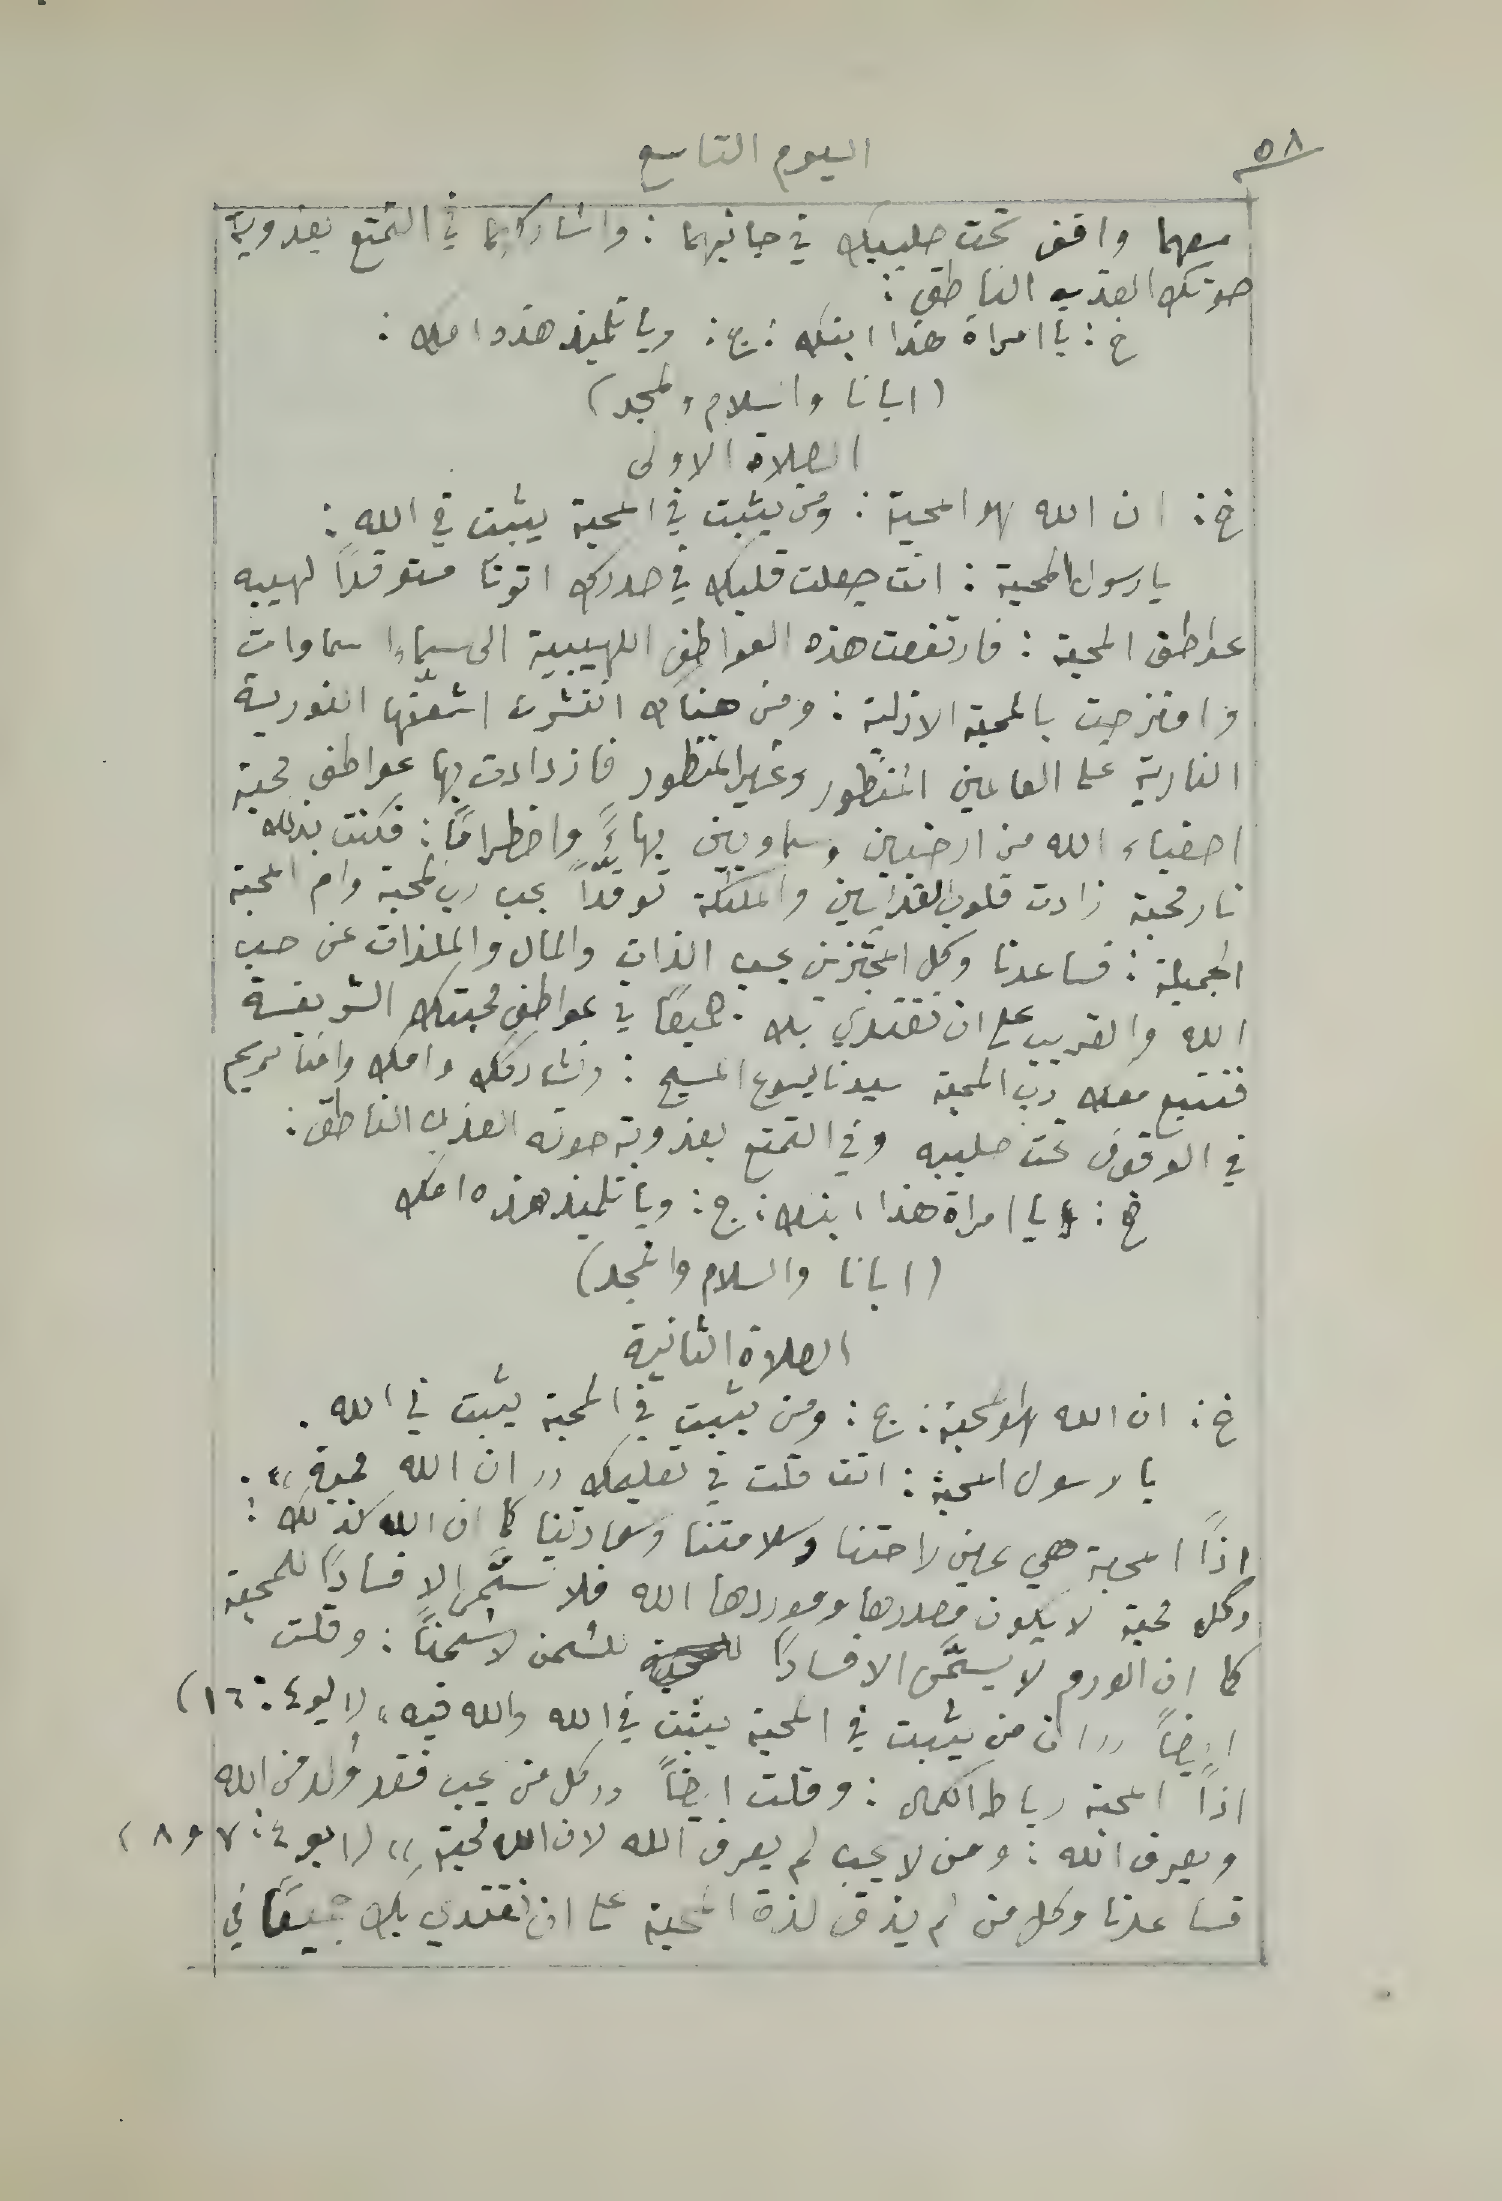 ٥٨
اليوم التاسع
معهما واقف تحت صليبك في جانبهما : واشاركهما في التمتع بعذوبة
صوتك العذب الناطق :
خ : يا امراة هذا ابنك : ج : ويا تلميذ هذه امك :
( ابانا والسلام والمجد )
الصلاة الاولى
خ : ان الله هو المحبة : ومن يثبت في المحبة يثبت في الله :
يا رسول المحبة : انت جعلت قلبك في صدرك اتونًا متوقدًا لهيبه
عواطف المحبة : فارتفعت هذه العواطف اللهيبية الى سماء سماوات
وامتزجت بالمحبة الازلية : ومن هناك انتشرت اشعتها النورية
النارية على العالمين المنظور وغير المنظور فازدادت بها عواطف محبة
اصفياء الله من ارضيين وسماويين بهاءً واضطرامًا : فكنت بذلك
نار محبة زادت قلوب القديسين والملئكة توقّدًا بحب رب المحبة وام المحبة
الجميلة : فساعدنا وكل المجتزين بحب الذات والمال والملذات عن حب
الله والقريب على ان نقتدي بك جميعًا في عواطف محبتك الشريفة
فنتبع معك رب المحبة سيدنا يسوع المسيح : ونشاركك وامك وامنا مريم
في الوقوف تحت صليبه وفي التمتع بعذوبة صوته العذب الناطق :
خ : يا امراة هذا ابنك : ج : ويا تلميذ هذه امك
( ابانا والسلام والمجد )
الصلاة الثانية
خ : ان الله هو المحبة : ج : ومن يثبت في المحبة يثبت في الله .
يا رسول المحبة : انت قلت في تعليمك „ ان الله محبة “ .
اذًا المحبة هي عين راحتنا وسلامتنا وسعادتنا كما ان الله كذلك :
وكل محبة لا يكون مصدرها وموردها الله فلا تسمَّى الا فسادًا للمحبة
كما ان الورم لا يسمَّى الا فسادًا للسمن لا سمنًا : وقلت
ايضًا „ ان من يثبت في المحبة يثبت في الله والله فيه “ ( ١ يو ٤ : ١٦ )
اذًا المحبة رباط الكمال : وقلت ايضًا „ كل من يحب فقد وُلد من الله
ويعرف الله : ومن لا يحب لم يعرف الله لان الله محبة “ ( ١ يو ٤ : ٧ و ٨ )
فساعدنا وكل من لم يذق لذة المحبة على ان نقتدي بك جميعًا في